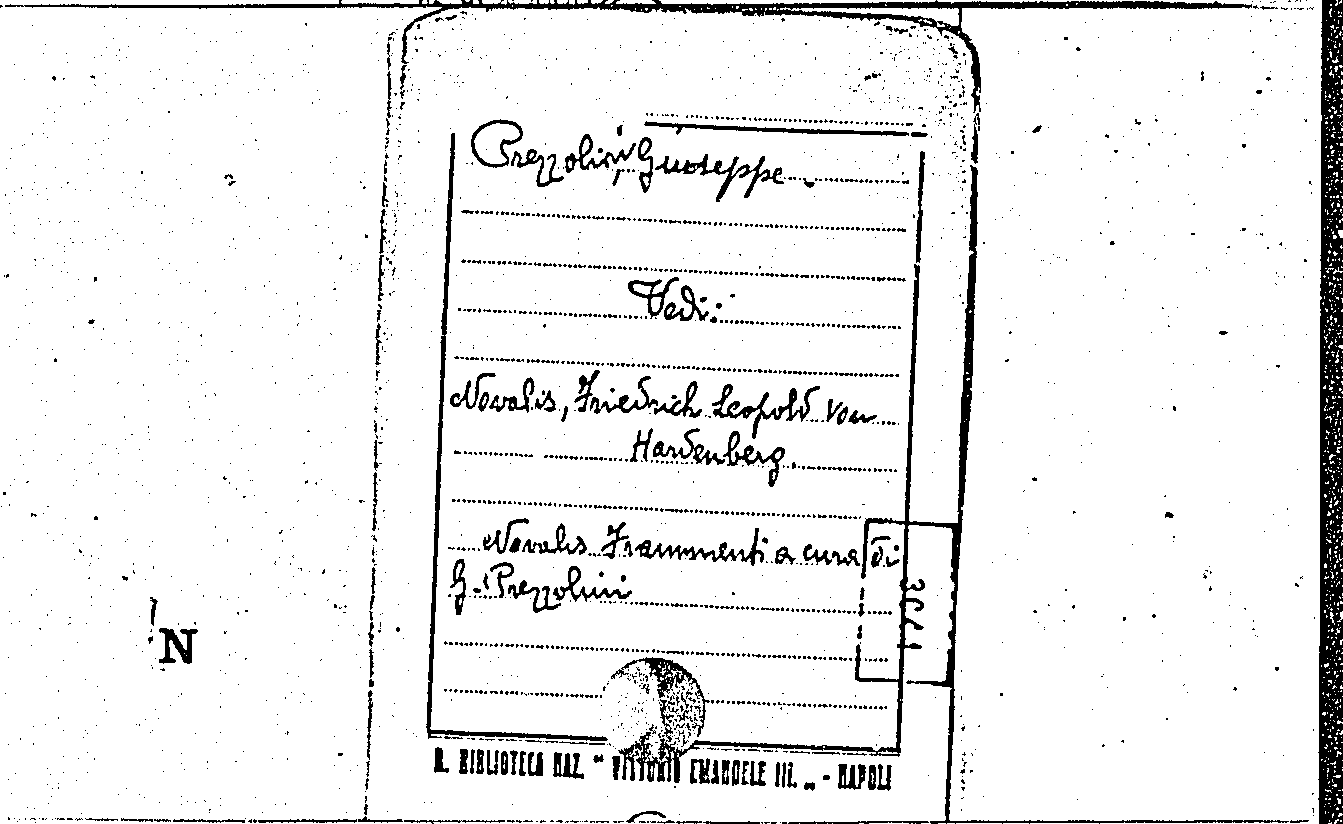 Prezzolini, Giuseppe.
Vedi:
Novalis, Friedrich Leopold von
Hardenberg.
Novalis Frammenti a cura di
G. Prezzolini
N
R. BIBLIOTECA NAZ. " VITTORIO EMANUELE III. „ - NAPOLI